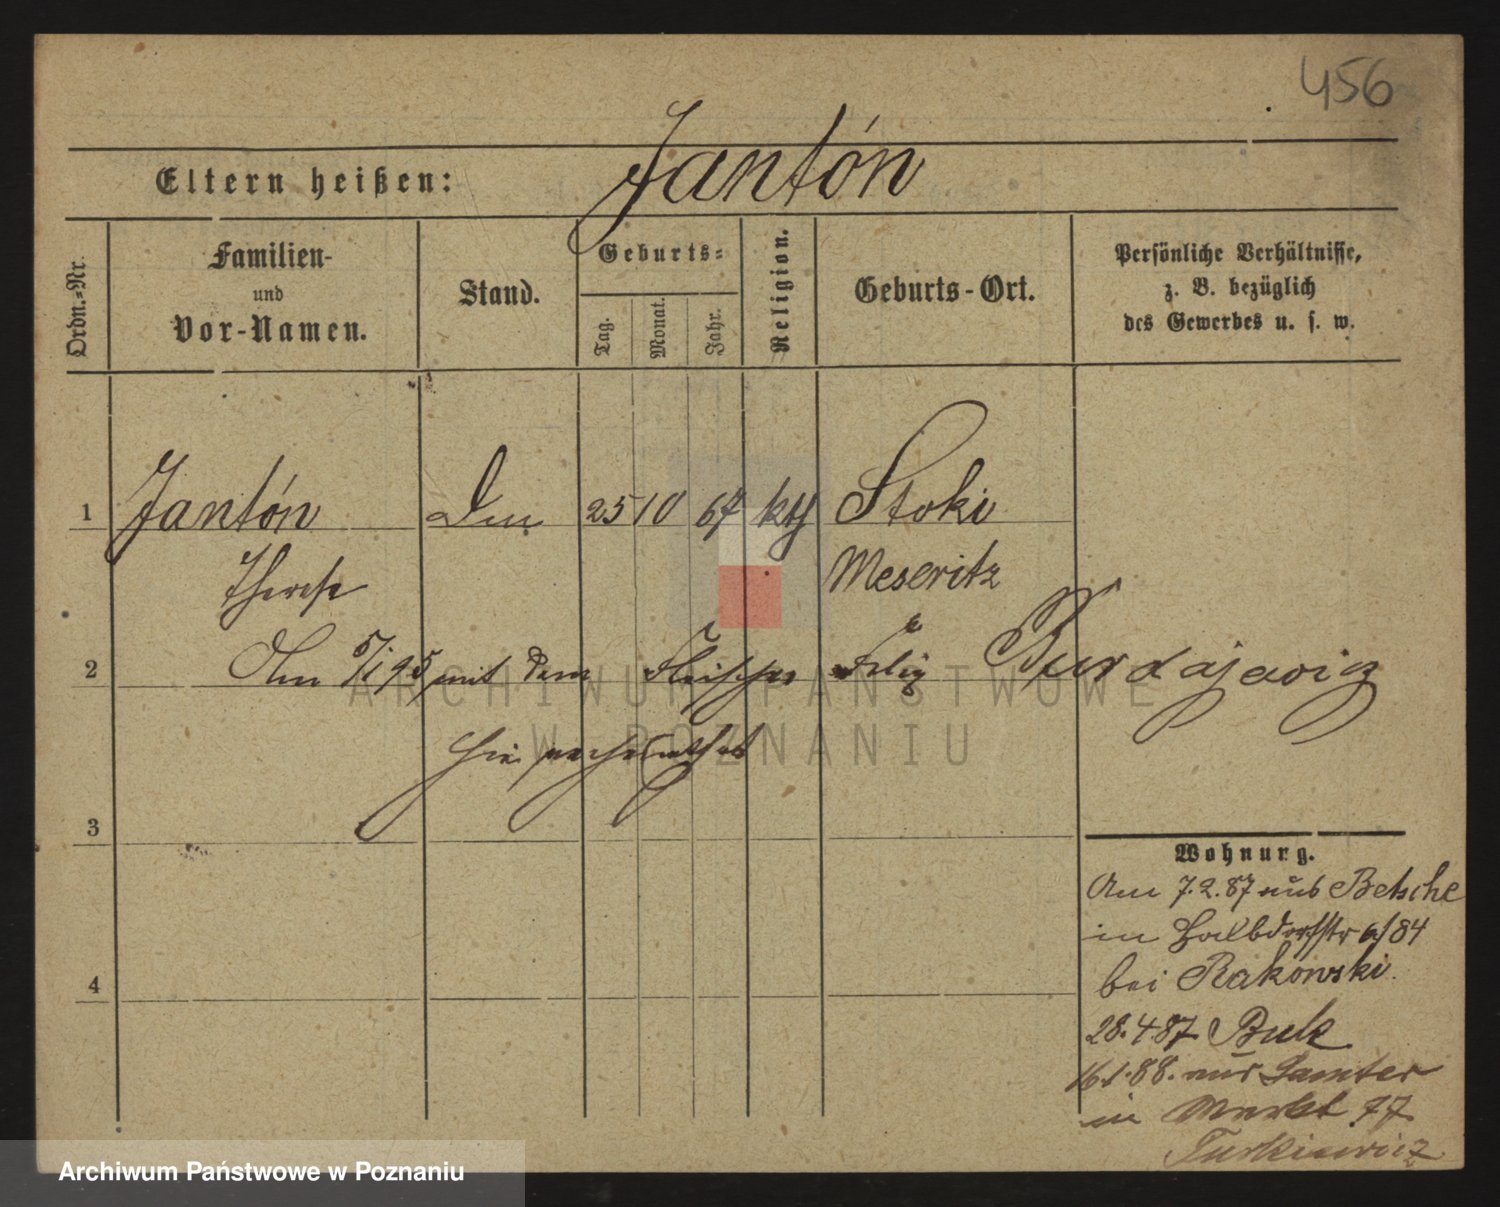 456
Eltern heißen: Jantón
Ordn.-Nr.
Familien-
und
Vor-Namen.
Stand.
Geburts-
Tag.
Monat.
Jahr.
Religion.
Geburts-Ort.
Persönliche Verhältnisse,
z. B. bezüglich
des Gewerbes u. s. w.
1 Jantón 25 10 67 kth Stoki
Therese Meseritz
2 Am 5/1 95 mit dem Fleischer Felix Burdajewicz
hie verheirathet
3
Wohnung.
Am 7.2.87 aus Betsche
in Halbdorfstr 84
bei Rakowski.
4
28.4.87 Buk
16.1.88. aus Samter
in Markt 77
Turkiewicz
ARCHIWUM PAŃSTWOWE
W POZNANIU
Archiwum Państwowe w Poznaniu